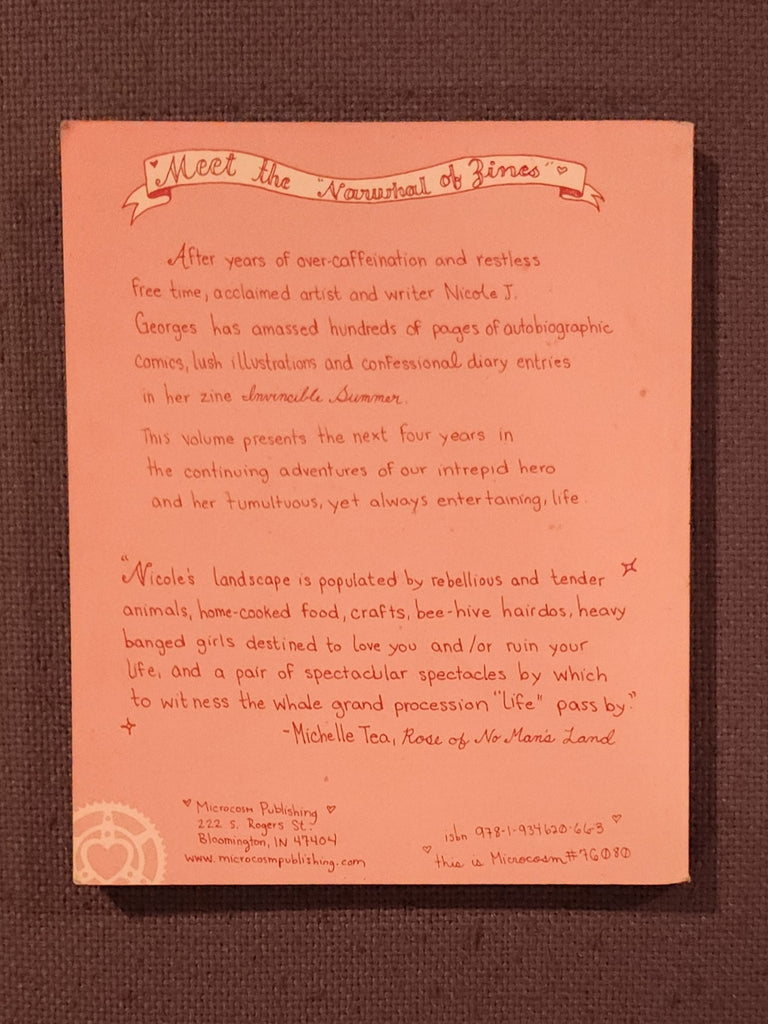 Meet the "Narwhal of Zines"
After years of over-caffeination and restless
free time, acclaimed artist and writer Nicole J.
Georges has amassed hundreds of pages of autobiographic
comics, lush illustrations and confessional diary entries
in her zine Invincible Summer.
This volume presents the next four years in
the continuing adventures of our intrepid hero
and her tumultuous, yet always entertaining, life.
"Nicole's landscape is populated by rebellious and tender
animals, home-cooked food, crafts, bee-hive hairdos, heavy
banged girls destined to love you and/or ruin your
life, and a pair of spectacular spectacles by which
to witness the whole grand procession "life" pass by."
-Michelle Tea, Rose of No Man's Land
Microcosm Publishing
222 S. Rogers St.
Bloomington, IN 47404
www.microcosmpublishing.com
isbn 978-1-934620-66-3
this is Microcosm #76080